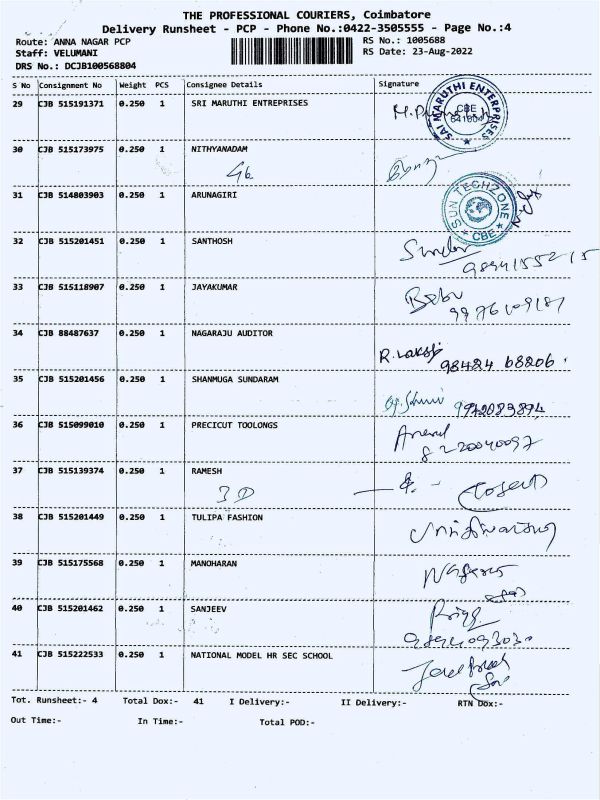 THE PROFESSIONAL COURIERS, Coimbatore
Delivery Runsheet - PCP - Phone No.:0422-3505555 - Page No.:4
Route: ANNA NAGAR PCP
RS No.: 1005688
Staff: VELUMANI
RS Date: 23-Aug-2022
DRS No.: DCJB100568804
S No Consignment No Weight PCS Consignee Details Signature
29 CJB 515191371 0.250 1 SRI MARUTHI ENTREPRISES
SAI MARUTHI ENTERPRISES
CBE
30 CJB 515173975 0.250 1 NITHYANADAM
31 CJB 514803903 0.250 1 ARUNAGIRI
SUN TECHZONE
CBE
32 CJB 515201451 0.250 1 SANTHOSH
33 CJB 515118907 0.250 1 JAYAKUMAR
Babu
34 CJB 88487637 0.250 1 NAGARAJU AUDITOR
98424 68206
35 CJB 515201456 0.250 1 SHANMUGA SUNDARAM
9942089894
36 CJB 515099010 0.250 1 PRECICUT TOOLONGS
8220040097
37 CJB 515139374 0.250 1 RAMESH
38 CJB 515201449 0.250 1 TULIPA FASHION
39 CJB 515175568 0.250 1 MANOHARAN
40 CJB 515201462 0.250 1 SANJEEV
41 CJB 515222533 0.250 1 NATIONAL MODEL HR SEC SCHOOL
Tot. Runsheet:- 4 Total Dox:- 41 I Delivery:- II Delivery:- RTN Dox:-
Out Time:- In Time:- Total POD:-